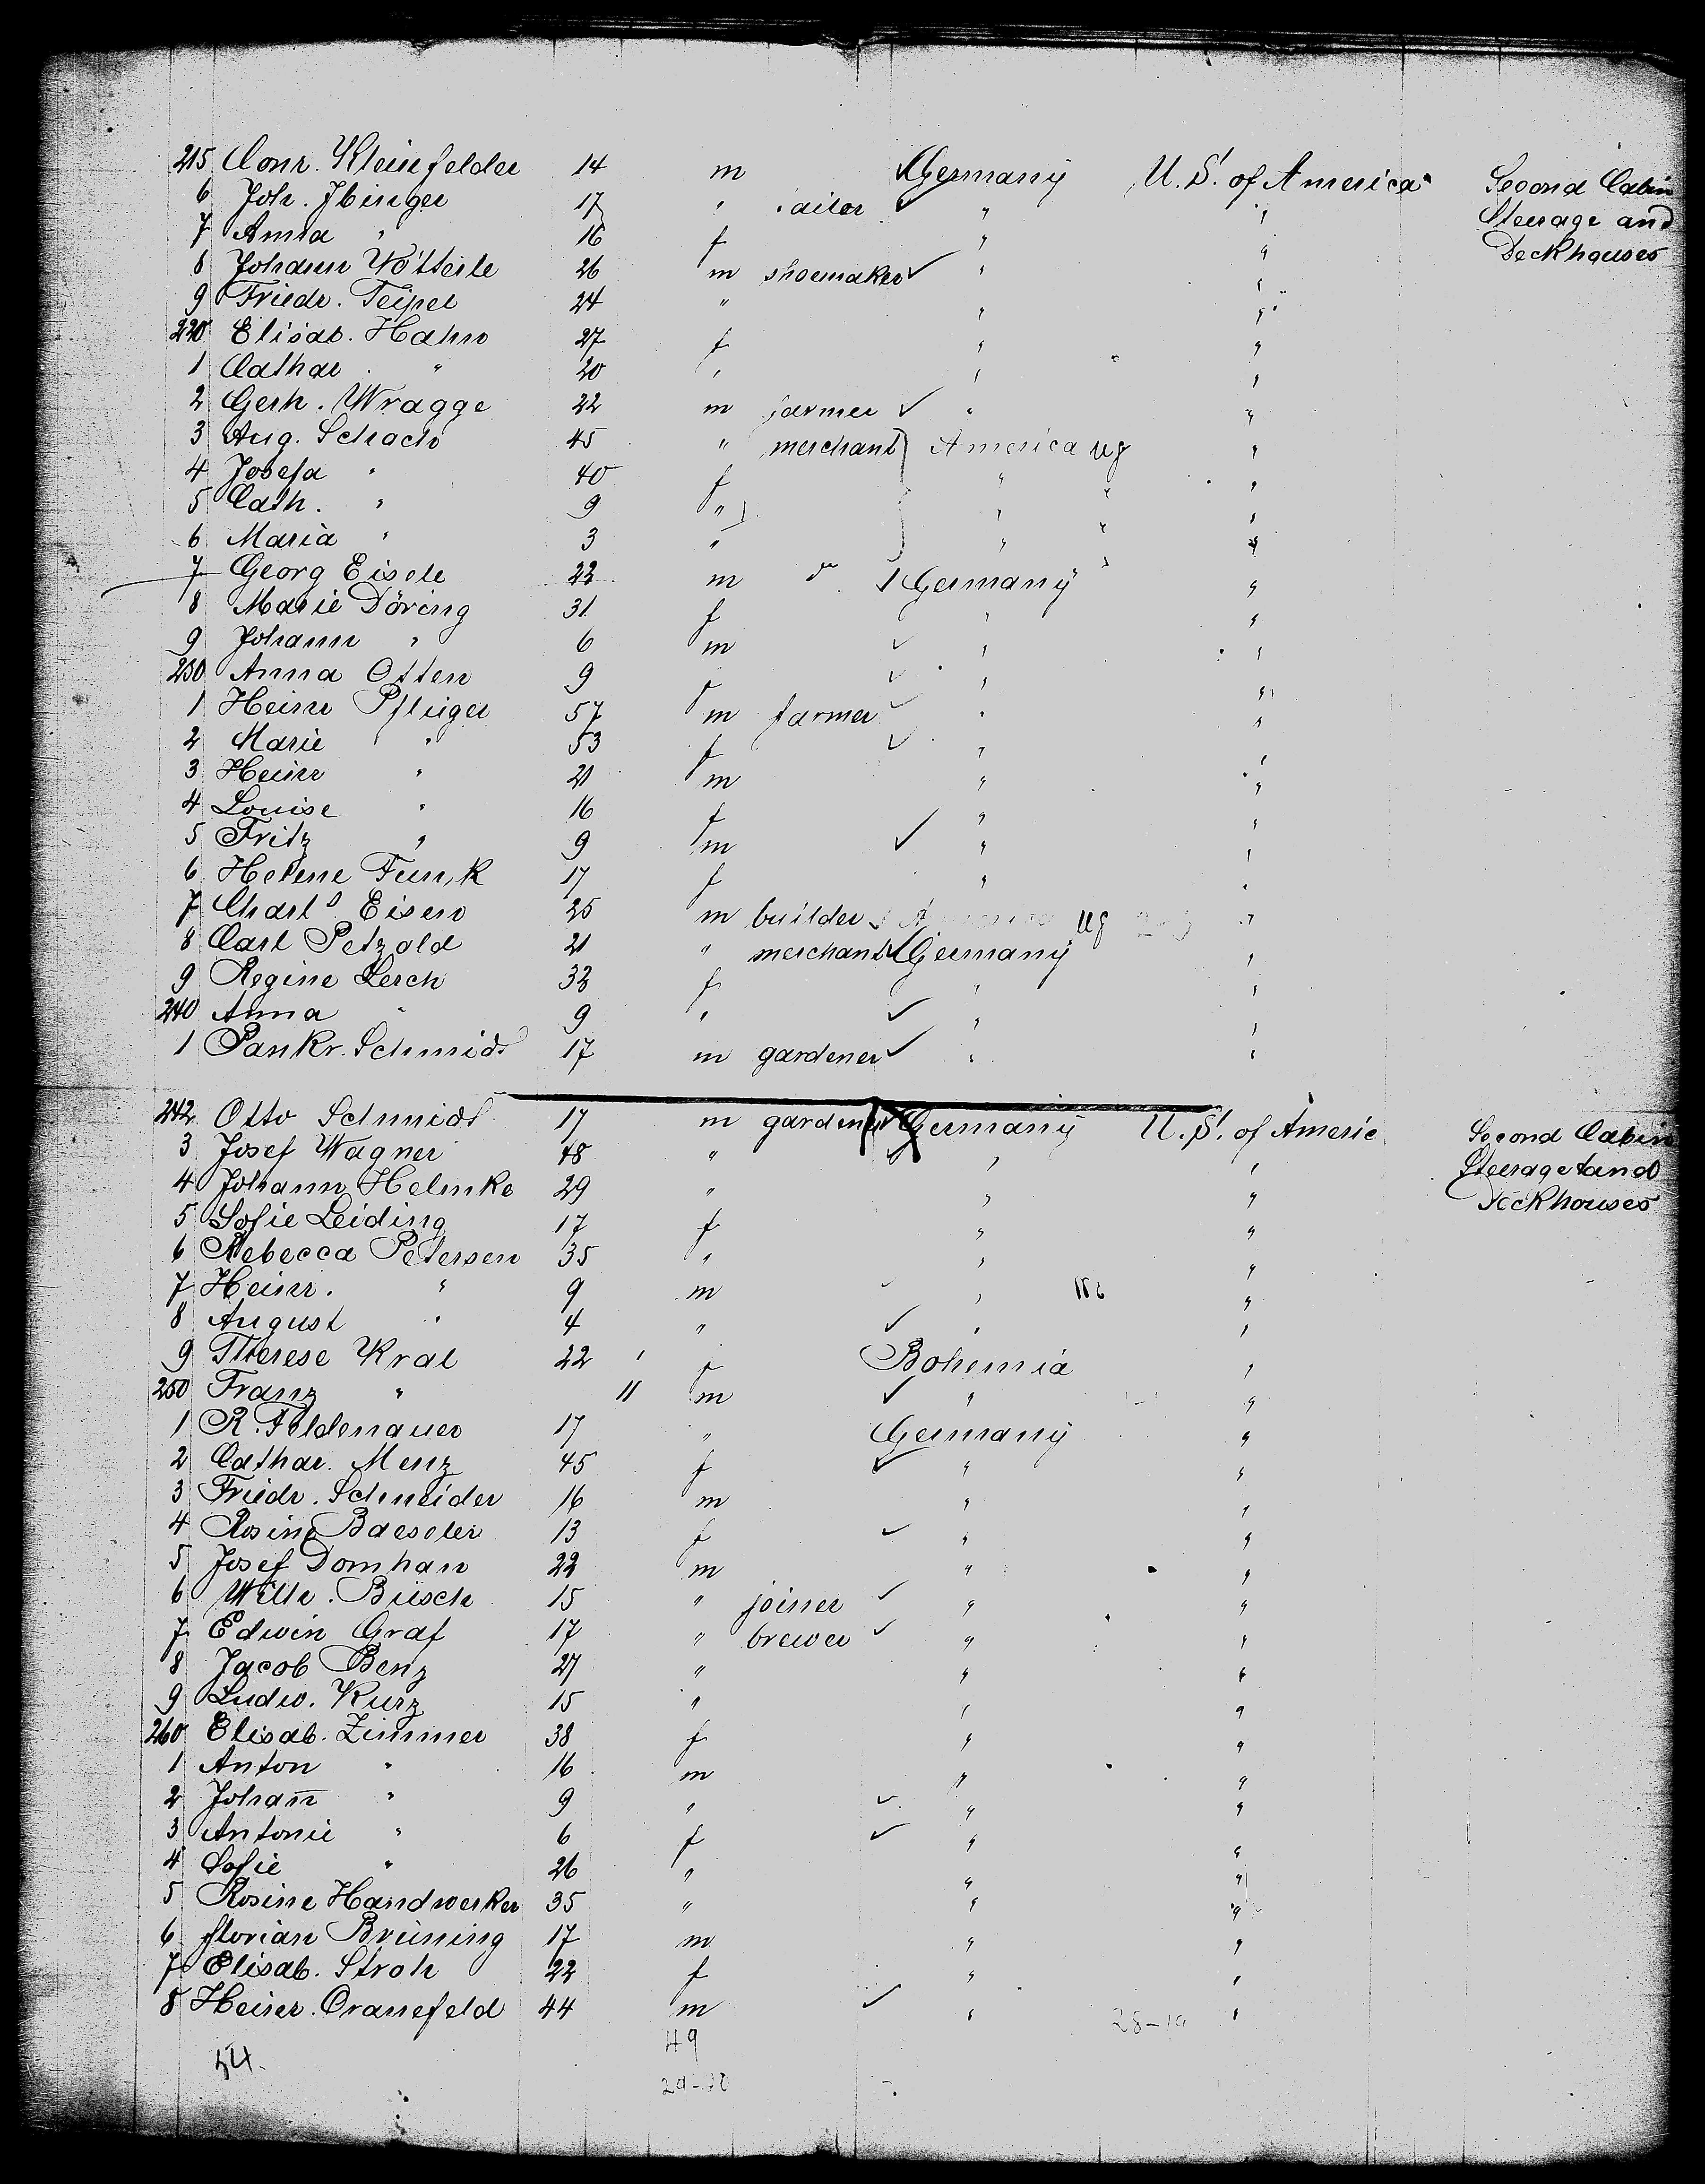 215 Conr. Kleinfelder 14 m Germany U. S. of America Second Cabin
6 Joh. Ibinger 17 " tailor " " Steerage and
7 Anna " 16 f " " Deckhouses
8 Johann Wötteile 26 m shoemaker " "
9 Friedr. Teipel 24 " " "
220 Elisab. Hahn 27 f " "
1 Cathar " 20 " " "
2 Gerh. Wragge 22 m farmer " "
3 Aug. Schach 45 " merchant America "
4 Josefa " 40 f " "
5 Cath. " 9 " " "
6 Maria " 3 " " "
7 Georg Eisele 22 m Germany "
8 Marie Döring 31 f " "
9 Johann " 6 m " "
230 Anna Otten 9 f " "
1 Heinr Pflüger 57 m farmer " "
2 Marie " 53 f " "
3 Heinr " 21 m " "
4 Louise " 16 f " "
5 Fritz " 9 m " "
6 Helene Funk 17 f " "
7 Charls Eisen 25 m builder America "
8 Carl Petzold 21 " merchant Germany "
9 Regine Lerch 32 f " "
240 Anna " 9 " " "
1 Pankr. Schmidt 17 m gardener " "
242 Otto Schmidt 17 m gardener Germany U. S. of Americ Second Cabin
3 Josef Wagner 48 " " " Steerage and
4 Johann Helmke 29 " " " Deckhouses
5 Sofie Leiding 17 f " "
6 Rebecca Petersen 35 " " "
7 Heinr. " 9 m " "
8 August " 4 " " "
9 Therese Kral 22 f Bohemia "
250 Franz " 11 m " "
1 R. Feldenauer 17 " Germany "
2 Cathar. Menz 45 f " "
3 Friedr. Schneider 16 m " "
4 Rosine Baessler 13 f " "
5 Josef Domhan 22 m " "
6 Wilh. Büsch 15 " joiner " "
7 Edwin Graf 17 " brewer " "
8 Jacob Benz 27 " " "
9 Ludw. Kurz 15 " " "
260 Elisab. Zimmer 38 f " "
1 Anton " 16 m " "
2 Johan̄ " 9 " " "
3 Antonie " 6 f " "
4 Sofie " 26 " " "
5 Rosine Handwerker 35 " " "
6 Florian Brüning 17 m " "
7 Elisab. Stroh 22 f " "
8 Heinr. Cranefeld 44 m " "
54. 49